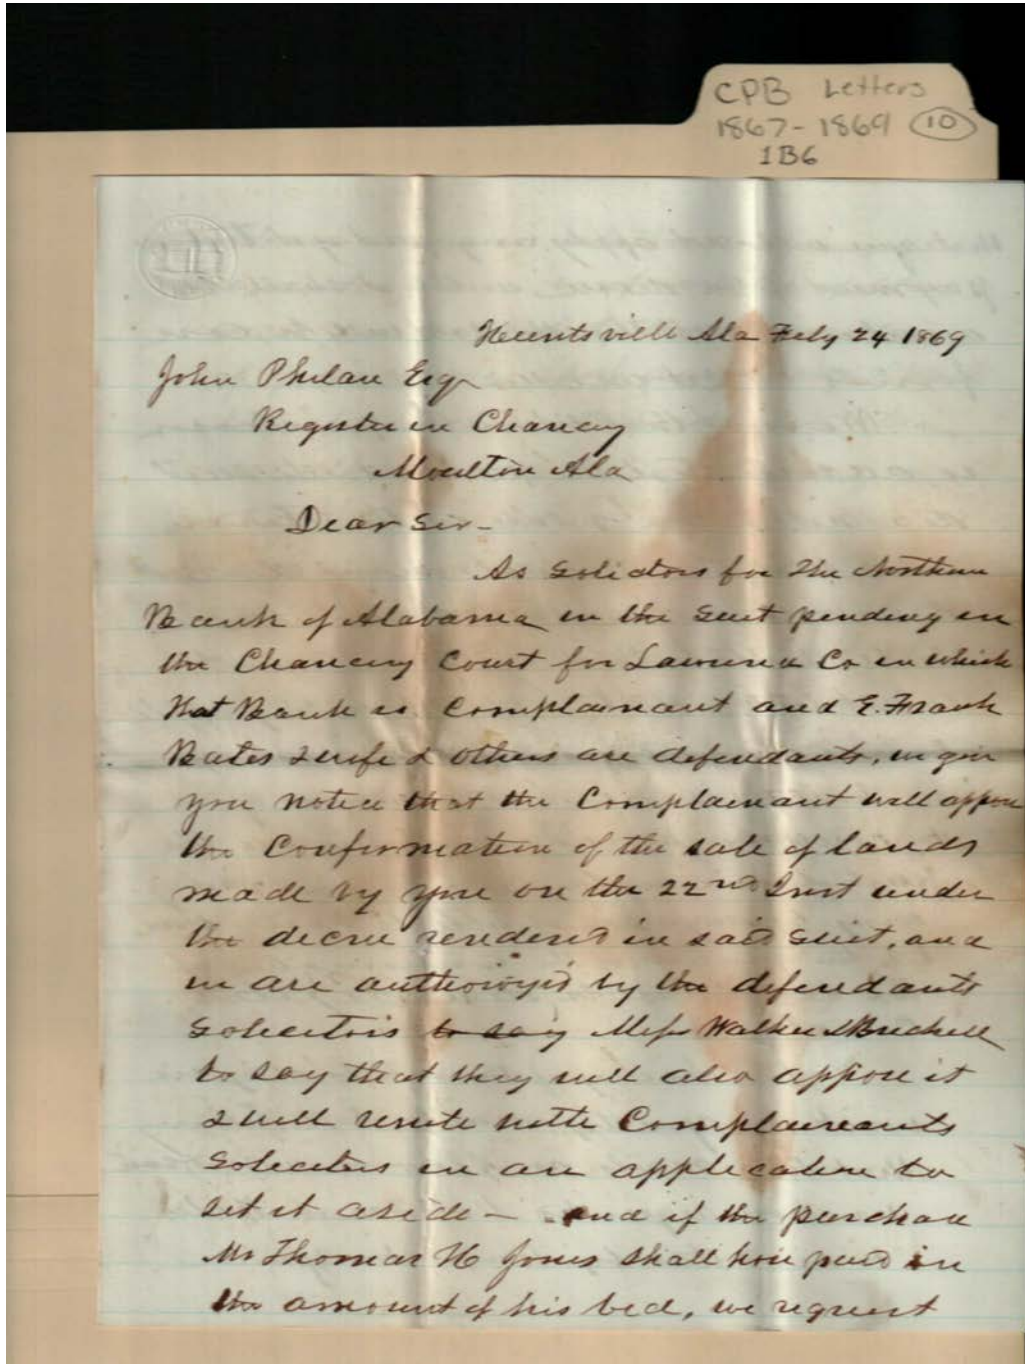 CPB Letters
1867-1869 10
1B6
Huntsville Ala Feby 24 1869
John Phelan Esqr
Register in Chancery
Moulton Ala
Dear Sir-
As Solicitors for The Northern
Bank of Alabama in the Suit pending in
the Chancery Court for Lawrence Co in which
that Bank is Complainant and E. Frank
Bates & wife & others are defendants, we give
you notice that the Complainant will oppose
the Confirmation of the sale of lands
made by you on the 22nd Inst under
the decree rendered in said Suit, and
we are authorized by the defendants
Solicitors to say Messrs Walker & Brickell
to say that they will also oppose it
& will unite with Complainants
Solicitors in an application to
set it aside - and if the purchaser
Mr Thomas H Jones shall have paid in
the amount of his bid, we request